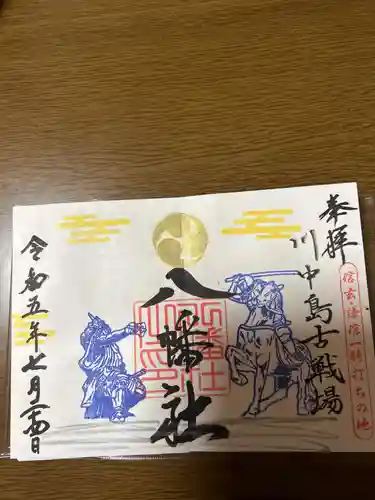 奉拝
川中島古戦場
信玄・謙信一騎打ちの地
八幡社
令和五年七月二十四日